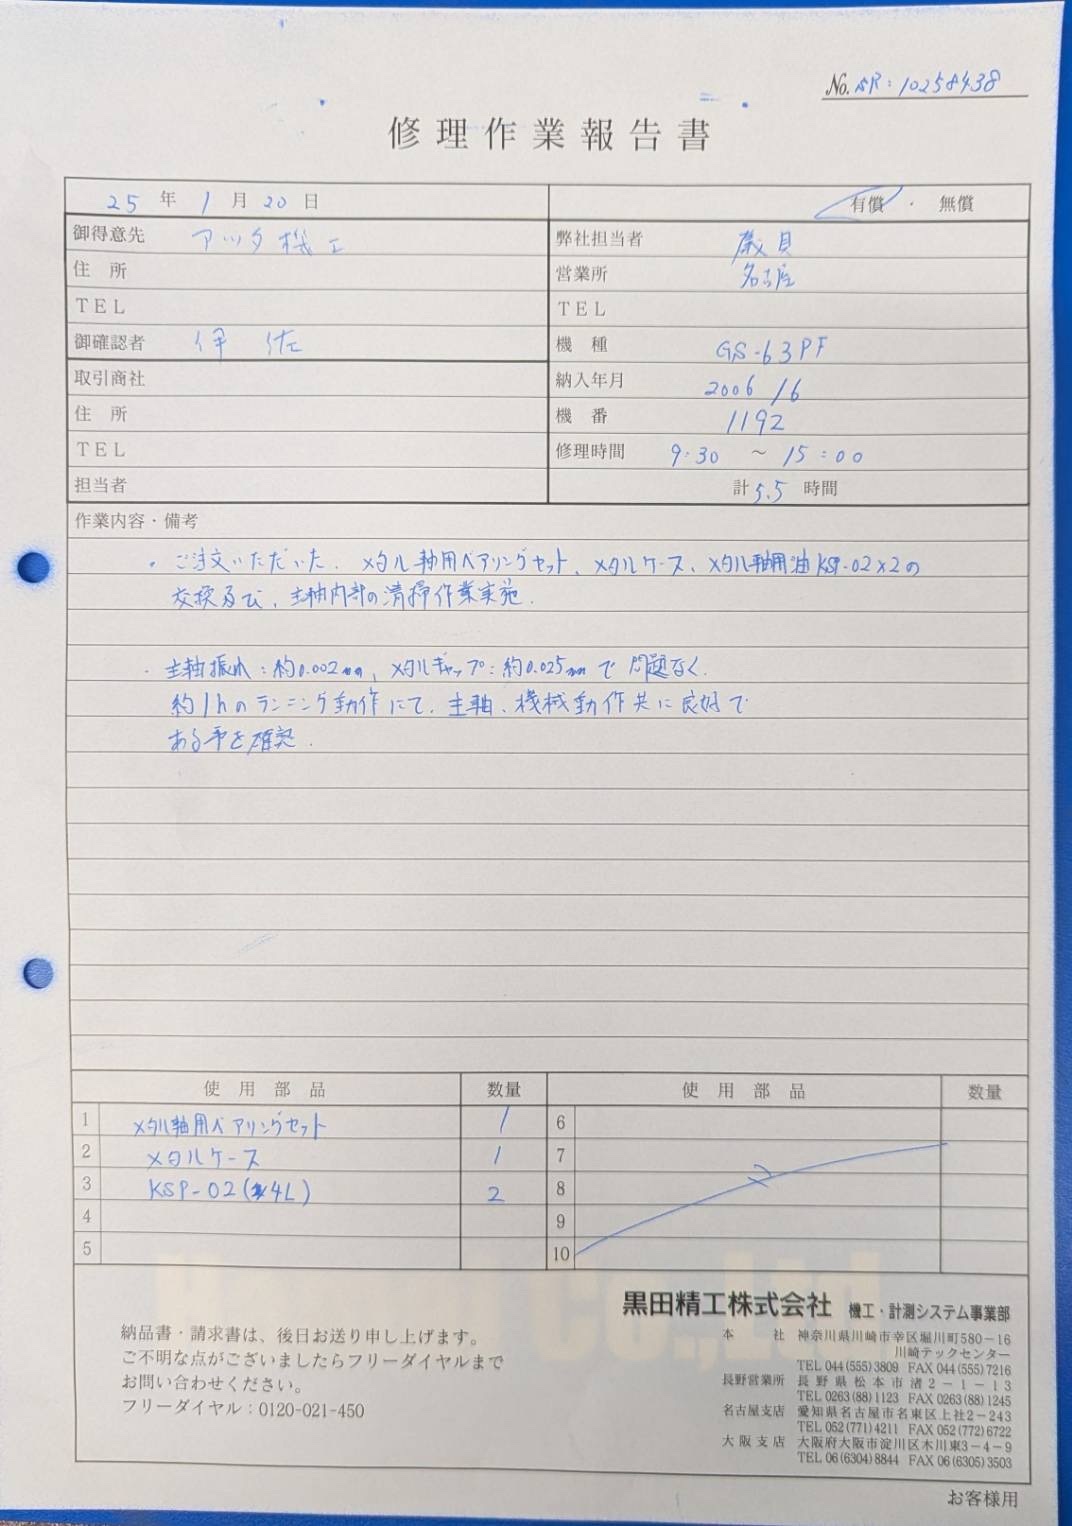 No. SR:10258438
修理作業報告書
25 年 1 月 20 日
有償 ・ 無償
御得意先 アツタ機工
住 所
TEL
御確認者 伊佐
取引商社
住 所
TEL
担当者
弊社担当者 磯貝
営業所 名古屋
TEL
機 種 GS-63PF
納入年月 2006/6
機 番 1192
修理時間 9:30 ～ 15:00
計 5.5 時間
作業内容・備考
・ご注文いただいた、メタル軸用ベアリングセット、メタルケース、メタル軸用油KSP-02×2の
交換及び、主軸内部の清掃作業実施.
・主軸振れ:約0.002mm, メタルギャップ:約0.025mmで問題なく.
約1hのランニング動作にて、主軸、機械動作共に良好で
ある事を確認.
使用部品 数量
1 メタル軸用ベアリングセット 1
2 メタルケース 1
3 KSP-02(4L) 2
4
5
使用部品 数量
6
7
8
9
10
納品書・請求書は、後日お送り申し上げます。
ご不明な点がございましたらフリーダイヤルまで
お問い合わせください。
フリーダイヤル：0120-021-450
黒田精工株式会社 機工・計測システム事業部
本 社 神奈川県川崎市幸区堀川町580－16
川崎テックセンター
TEL 044(555)3809 FAX 044(555)7216
長野営業所 長野県松本市渚2－1－13
TEL 0263(88)1123 FAX 0263(88)1245
名古屋支店 愛知県名古屋市名東区上社2－243
TEL 052(771)4211 FAX 052(772)6722
大阪支店 大阪府大阪市淀川区木川東3－4－9
TEL 06(6304)8844 FAX 06(6305)3503
お客様用